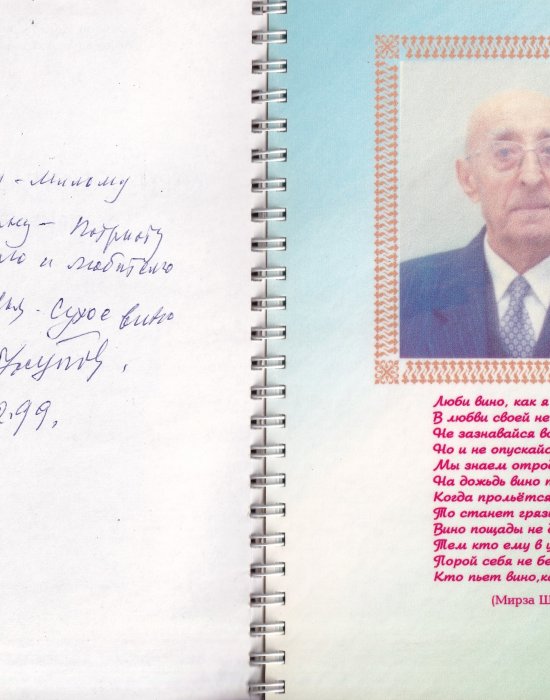 - Милому
- Патриоту
и любителю
- Сухое вино
Юсупов.
2.99.
Люби вино, как я
В любви своей не
Не зазнавайся во
Но и не опускайс
Мы знаем отрод
На дождь вино п
Когда прольётся
То станет грязь
Вино пощады не д
Тем кто ему в у
Порой себя не бе
Кто пьет вино,ка
(Мирза Ш